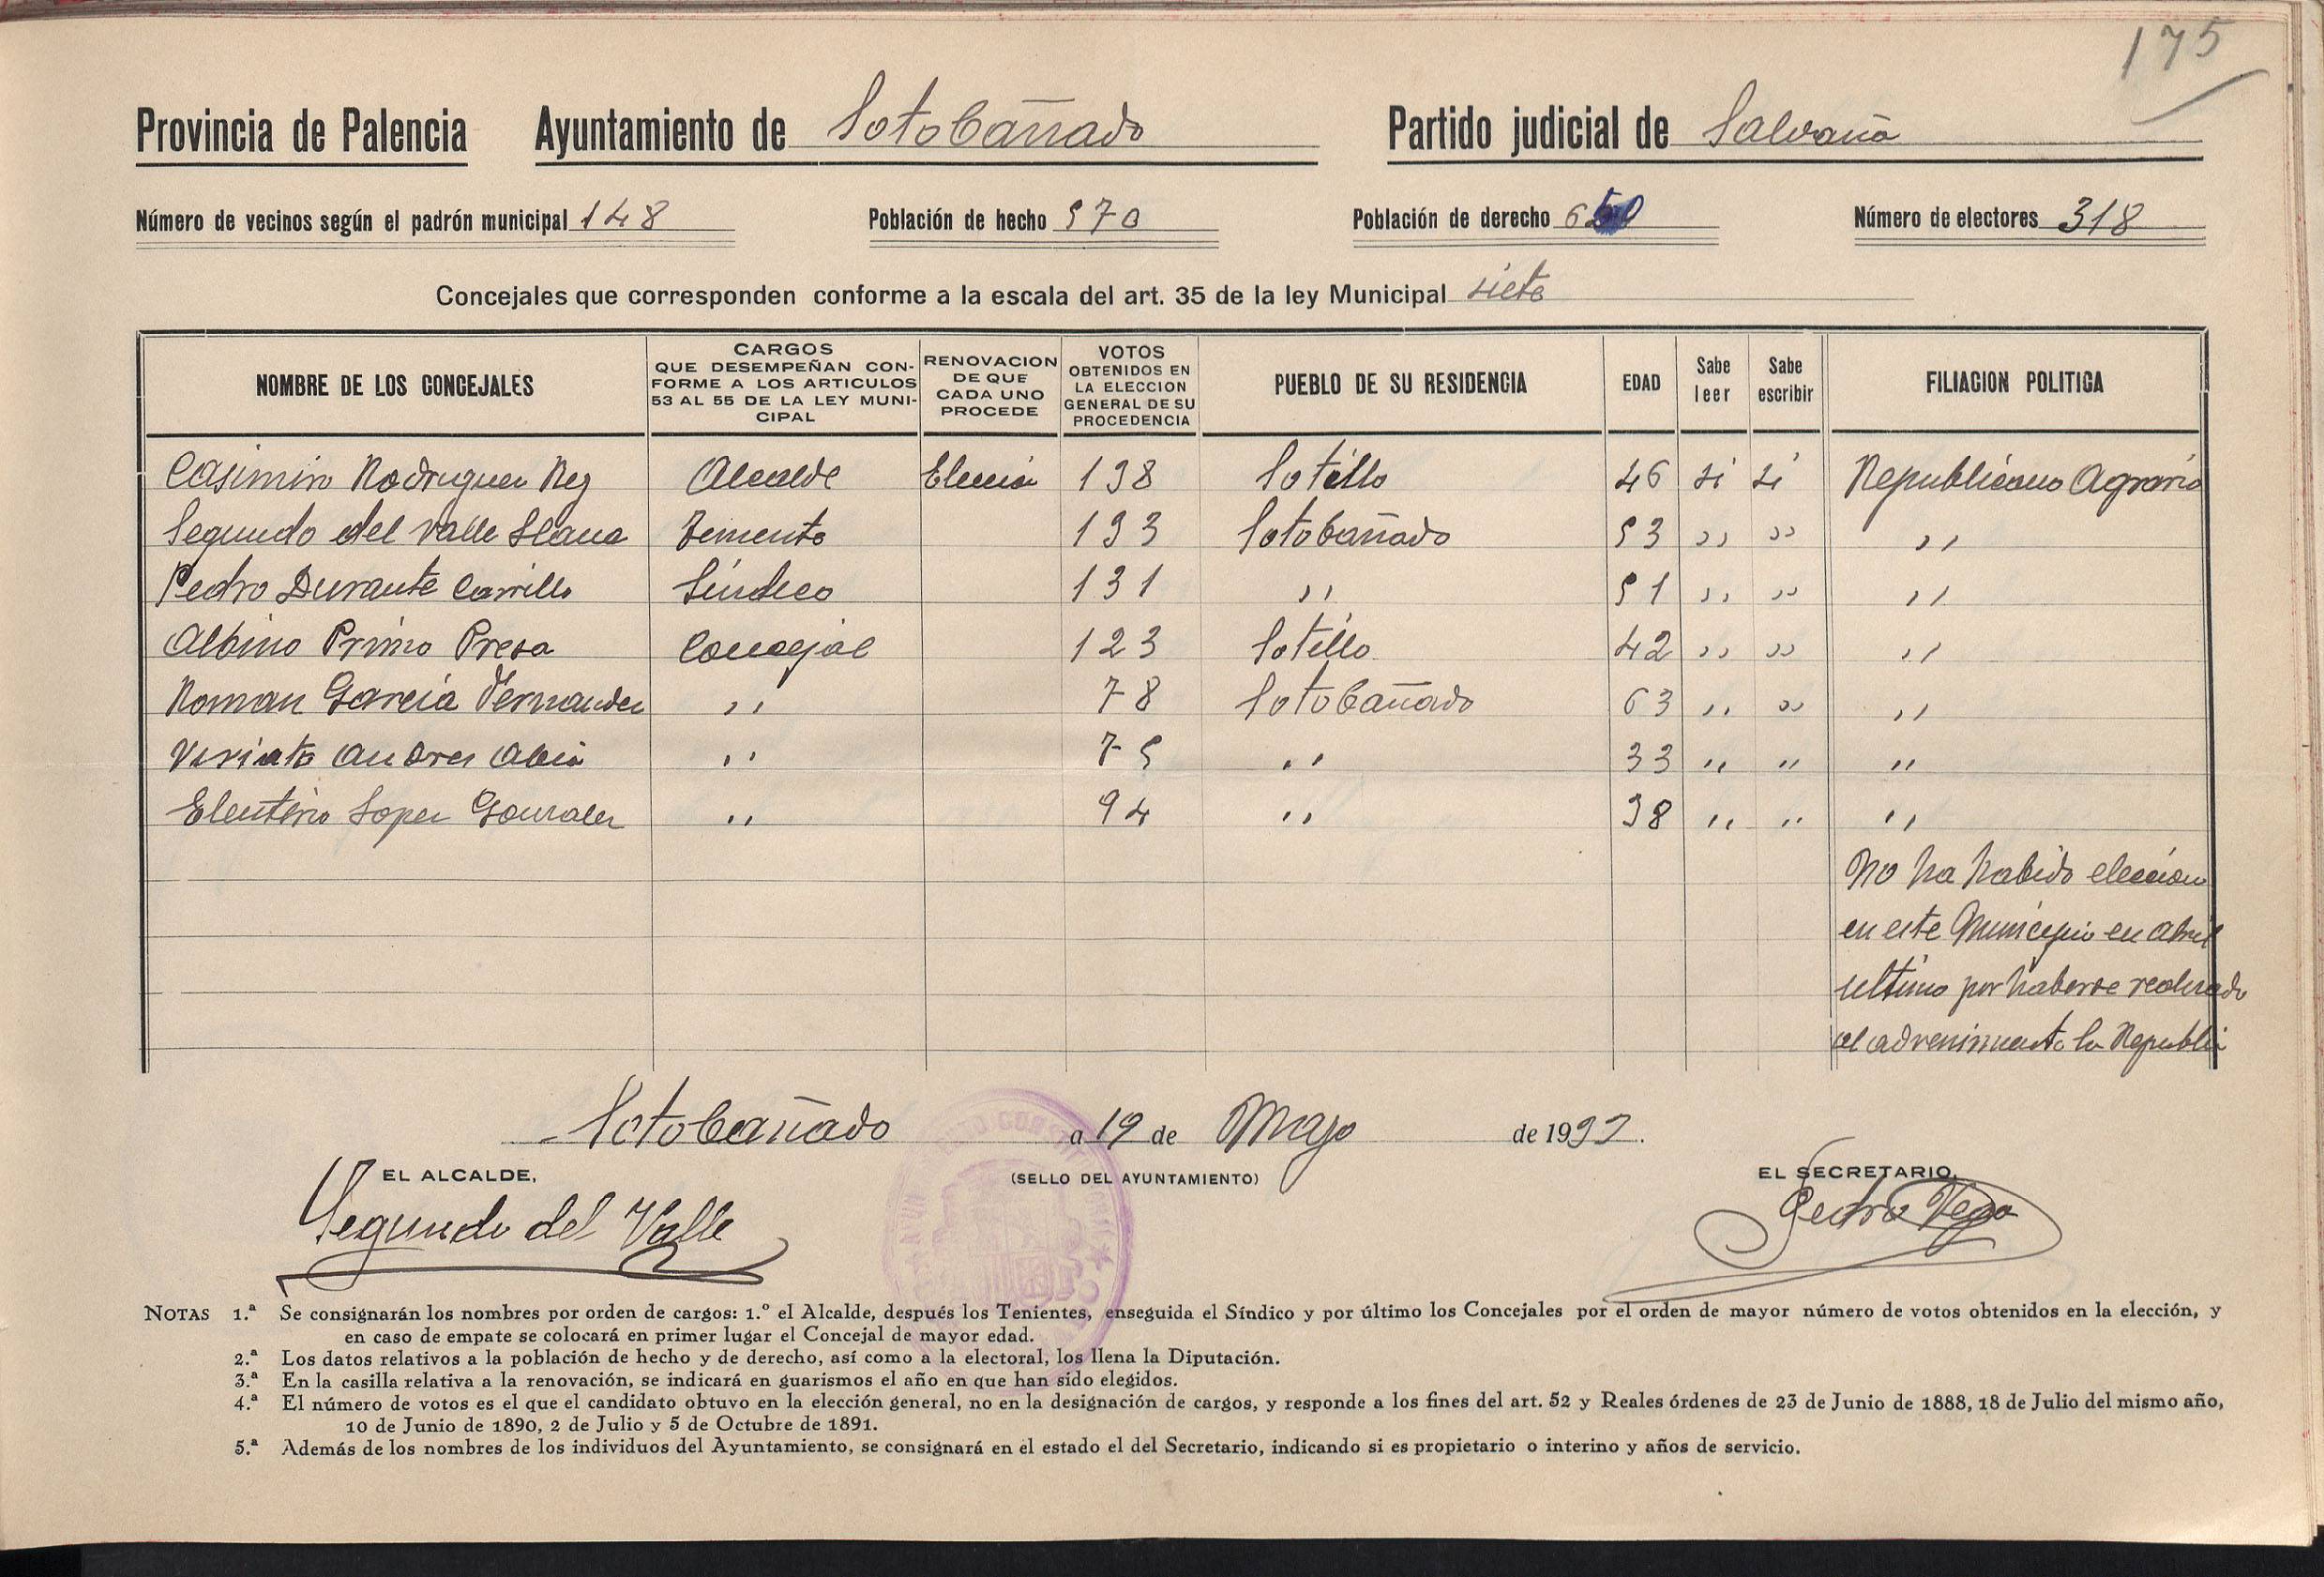 175
Provincia de Palencia Ayuntamiento de Sotobañado Partido judicial de Saldaña
Número de vecinos según el padrón municipal 148 Población de hecho 570 Población de derecho Número de electores 318
Concejales que corresponden conforme a la escala del art. 35 de la ley Municipal siete
NOMBRE DE LOS CONCEJALES CARGOS QUE DESEMPEÑAN CONFORME A LOS ARTICULOS 53 AL 55 DE LA LEY MUNICIPAL RENOVACION DE QUE CADA UNO PROCEDE VOTOS OBTENIDOS EN LA ELECCION GENERAL DE SU PROCEDENCIA PUEBLO DE SU RESIDENCIA EDAD Sabe leer Sabe escribir FILIACION POLITICA
Casimiro Rodriguez Rey Alcalde Elección 138 Sotillo 46 si si Republicano Agrario
Segundo del Valle Llana Teniente 133 Sotobañado 53 ,, ,, ,,
Pedro Durante Carrillo Síndico 131 ,, 51 ,, ,, ,,
Albino Primo Presa Concejal 123 Sotillo 42 ,, ,, ,,
Roman García Fernandez ,, 78 Sotobañado 63 ,, ,, ,,
Viriato Andres Abia ,, 75 ,, 33 ,, ,, ,,
Eleuterio Lopez Gonzalez ,, 94 ,, 38 ,, ,, ,,
No ha habido elección
en este Municipio en abril
ultimo por haberse realizado
al advenimiento la Republi
Sotobañado a 19 de Mayo de 1933.
EL ALCALDE, (SELLO DEL AYUNTAMIENTO) EL SECRETARIO,
Segundo del Valle Pedro Vega
NOTAS 1.ª Se consignarán los nombres por orden de cargos: 1.º el Alcalde, después los Tenientes, enseguida el Síndico y por último los Concejales por el orden de mayor número de votos obtenidos en la elección, y
en caso de empate se colocará en primer lugar el Concejal de mayor edad.
2.ª Los datos relativos a la población de hecho y de derecho, así como a la electoral, los llena la Diputación.
3.ª En la casilla relativa a la renovación, se indicará en guarismos el año en que han sido elegidos.
4.ª El número de votos es el que el candidato obtuvo en la elección general, no en la designación de cargos, y responde a los fines del art. 52 y Reales órdenes de 23 de Junio de 1888, 18 de Julio del mismo año,
10 de Junio de 1890, 2 de Julio y 5 de Octubre de 1891.
5.ª Además de los nombres de los individuos del Ayuntamiento, se consignará en el estado el del Secretario, indicando si es propietario o interino y años de servicio.